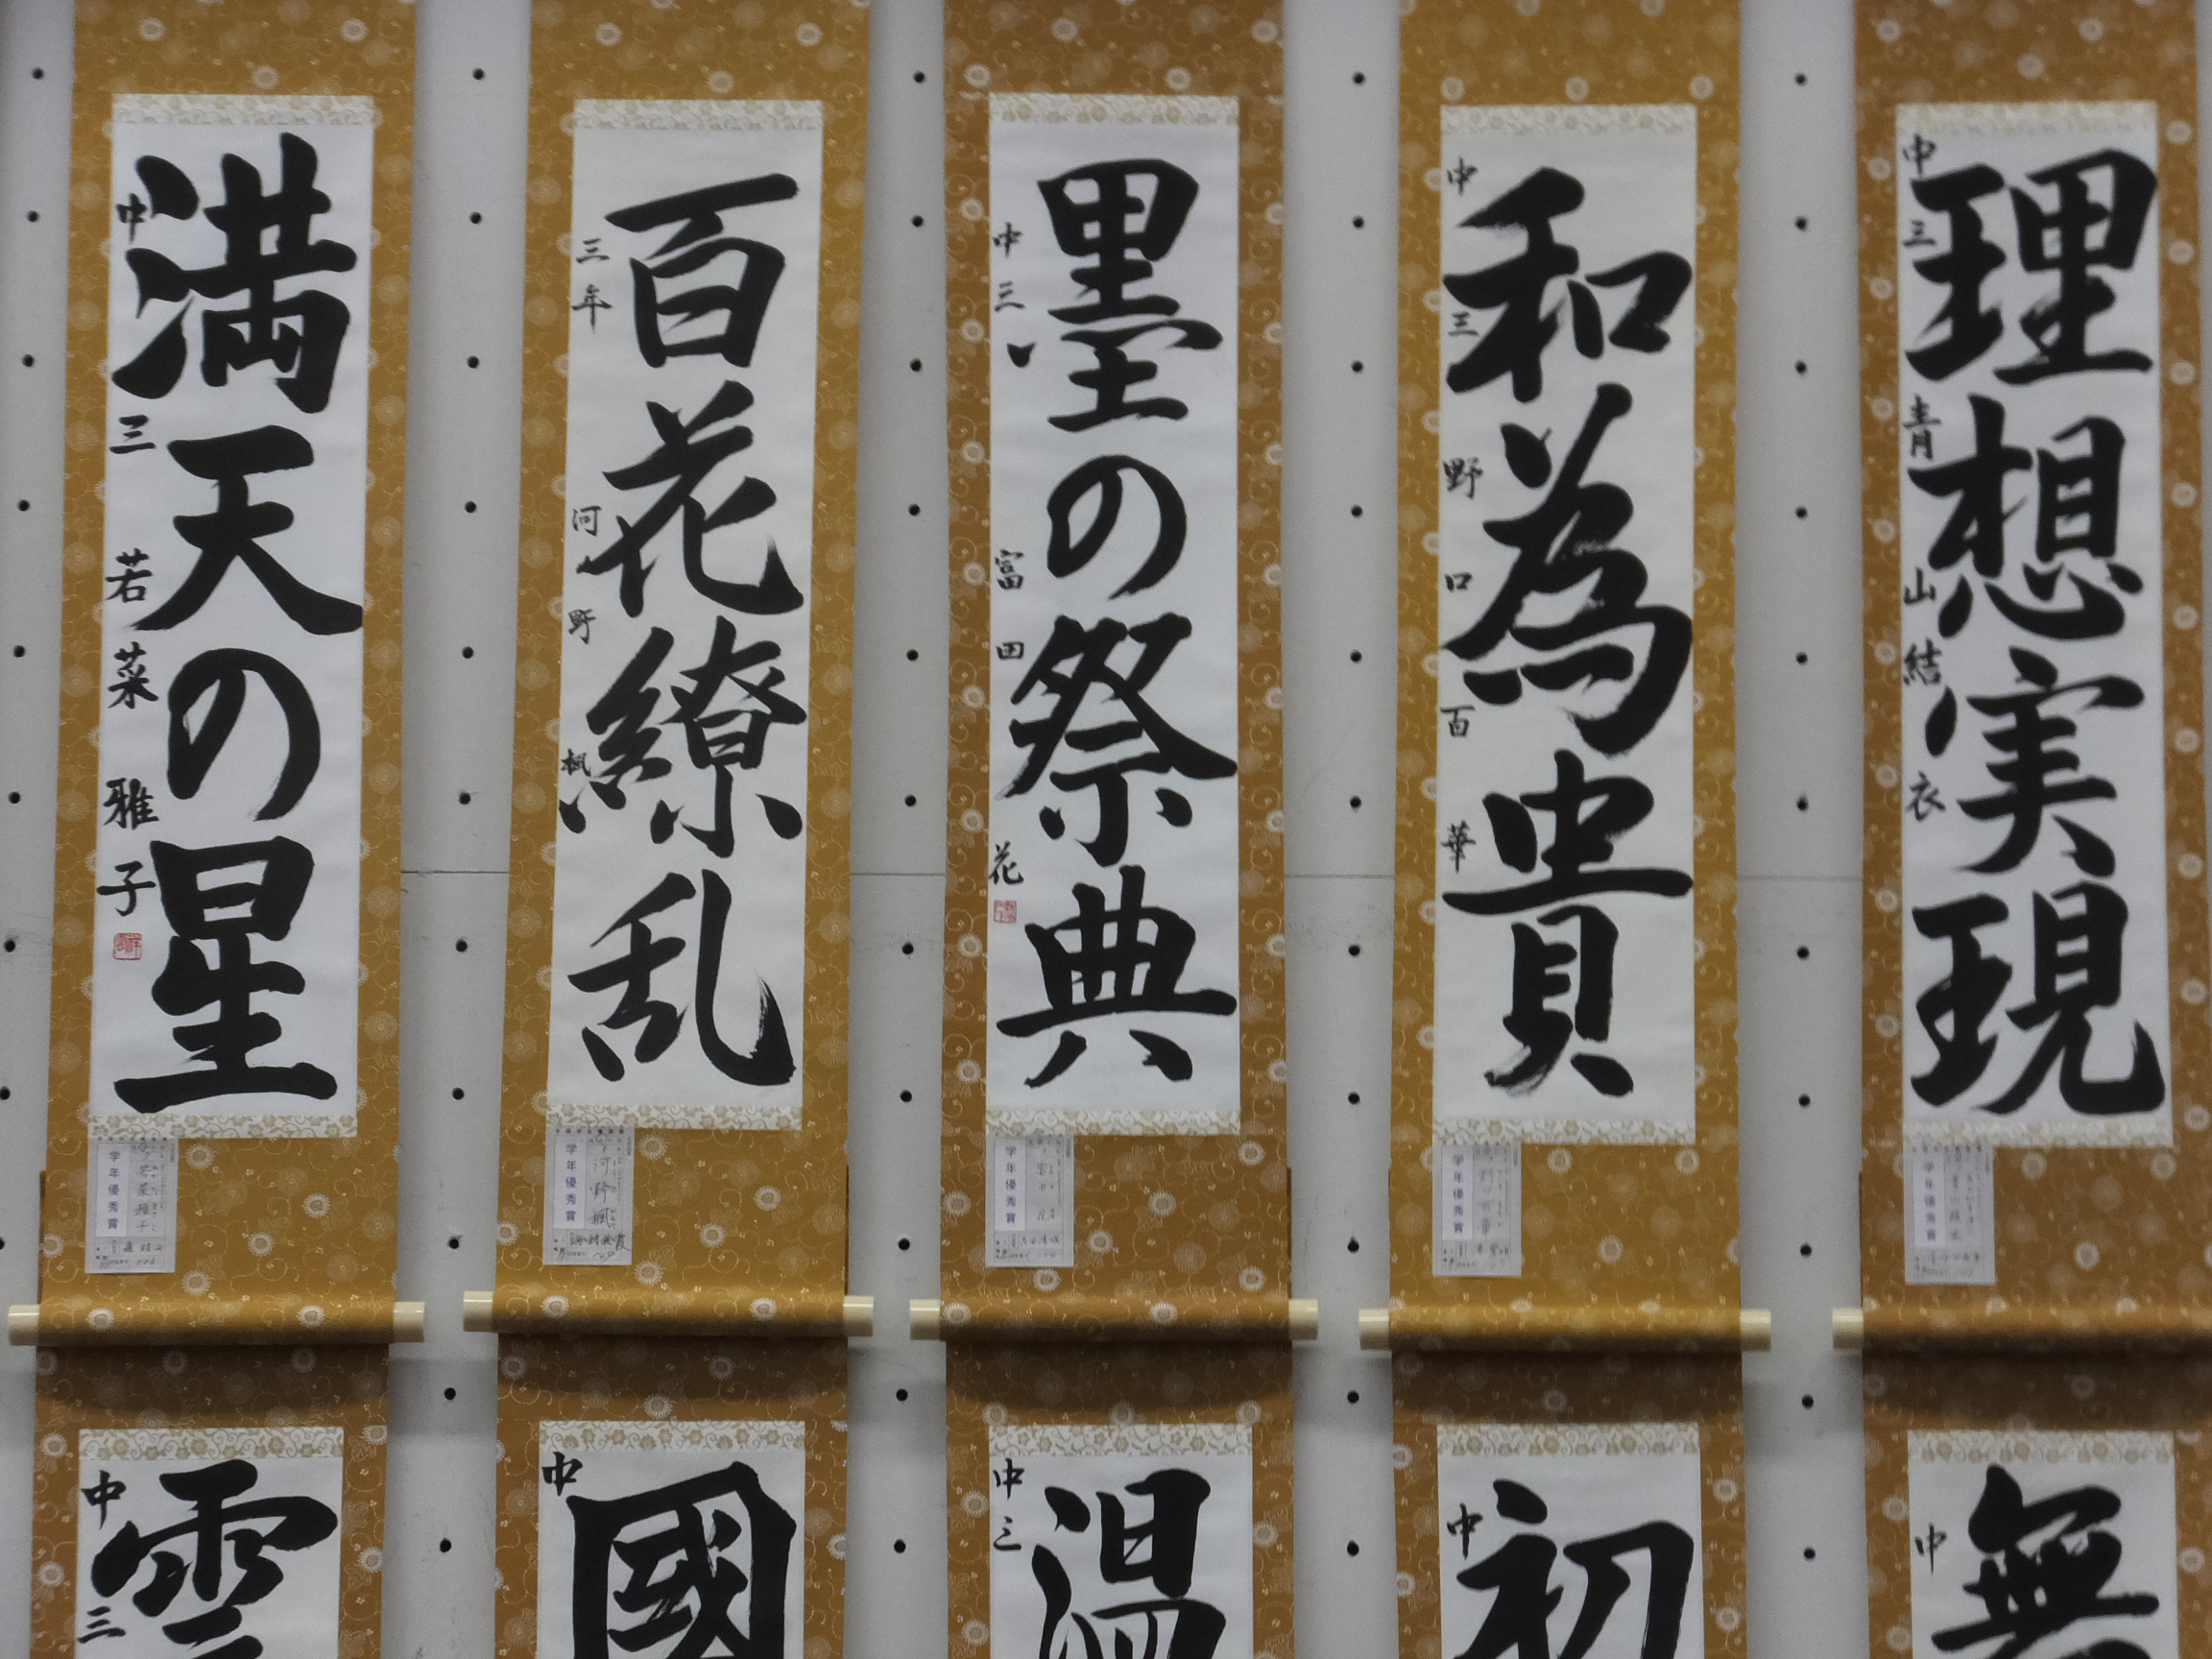 満天の星
中三 若菜雅子
学年優秀賞
百花繚乱
三年 河野楓
学年優秀賞
墨の祭典
中三 富田花
学年優秀賞
和為貴
中三 野口百華
学年優秀賞
理想実現
中三 青山結衣
学年優秀賞
雲
中三
國
中
温
中三
初
中
無
中